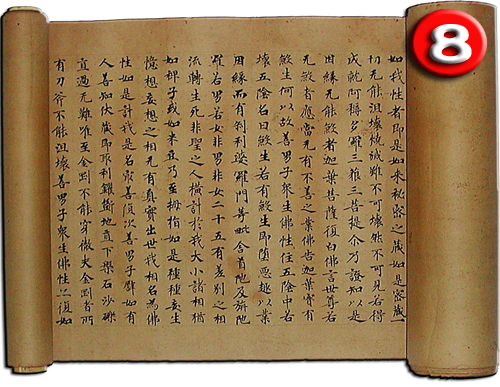 8
如我性者即是如来祕密之藏如是密藏一
切无能沮壞燒滅雖不可壞然不可見若得
成就阿耨多羅三藐三菩提尒乃證知以是
因緣无能煞者迦葉菩薩復白佛言世尊若
无煞者應當无有不善之業佛告迦葉實有
煞生何以故善男子衆生佛性住五陰中若
壞五陰名曰煞生若有煞生即墮惡趣以業
因緣而有刹利婆羅門等毗舍首陁及旃陁
羅若男若女非男非女二十五有差別之相
流轉生死非聖之人横計於我大小諸相猶
如稗子或如米豆乃至拇指如是種種妄生
憶想妄想之相无有真實出世我相名為佛
性如是計我是名最善復次善男子譬如有
人善知伏藏即取利钁斸地直下磐石沙礫
直過无難唯至金剛不能穿徹夫金剛者所
有刀斧不能沮壞善男子衆生佛性亦復如